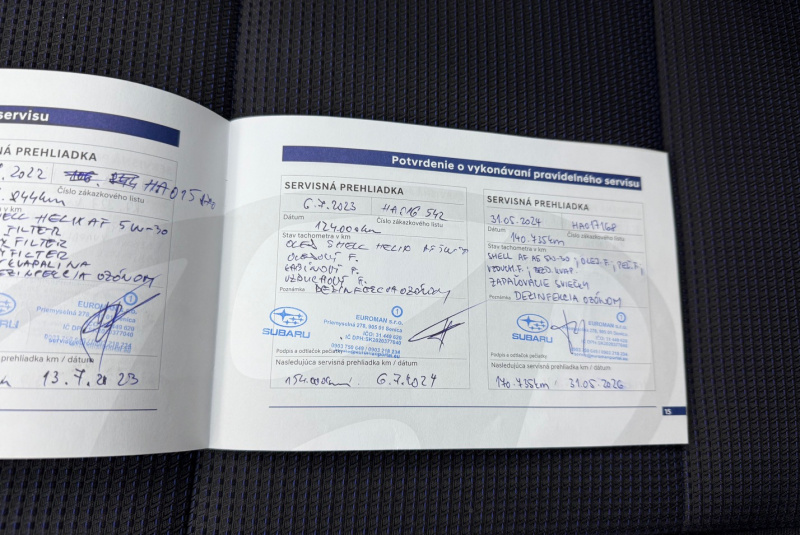 servisu
NÁ PREHLIADKA
2022 HA015
244km Číslo zákazkového listu
SHELL HELIX AF 5W-30
FILTER
FILTER
FILTER
KVAPALINA
DEZINFEKCIA OZÓNOM
SUBARU
EUROMAN s.r.o.
Priemyselná 278, 905 01 Senica
IČO: 31 449 620
IČ DPH: SK2020377040
prehliadka km / dátum
13.7.2023
Potvrdenie o vykonávaní pravidelného servisu
SERVISNÁ PREHLIADKA
6.7.2023 HA016 542
Dátum Číslo zákazkového listu
124.00 km
Stav tachometra v km
OLEJ SHELL HELIX AF 5W
OLEJOVÝ F.
KABÍNOVÝ F.
VZDUCHOVÝ F.
Poznámka DEZINFEKCIA OZÓNOM
SUBARU
EUROMAN s.r.o.
Priemyselná 278, 905 01 Senica
IČO: 31 449 620
IČ DPH: SK2020377040
Podpis a odtlačok pečiatky
Nasledujúca servisná prehliadka km / dátum
154.000km 6.7.2024
SERVISNÁ PREHLIADKA
31.05.2024 HA017168
Dátum Číslo zákazkového listu
140.735km
Stav tachometra v km
SHELL AF A5 5W-30, OLEJ. F, PEĽ. F,
VZDUCH. F, BRZD. KVAP.
ZAPAĽOVACIE SVIEČKY
Poznámka DEZINFEKCIA OZÓNOM
SUBARU
EUROMAN s.r.o.
Priemyselná 278, 905 01 Senica
Podpis a odtlačok pečiatky
Nasledujúca servisná prehliadka km / dátum
170.735km 31.05.2026
15